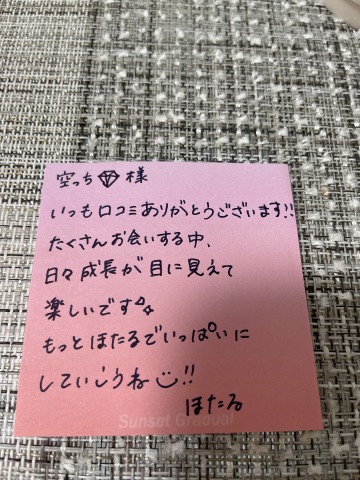 空っち💎様
いつも口コミありがとうございます!!
たくさんお会いする中、
日々成長が目に見えて
楽しいです
もっとほたるでいっぱいに
していこうね!!
ほたる
Sunset Gradual